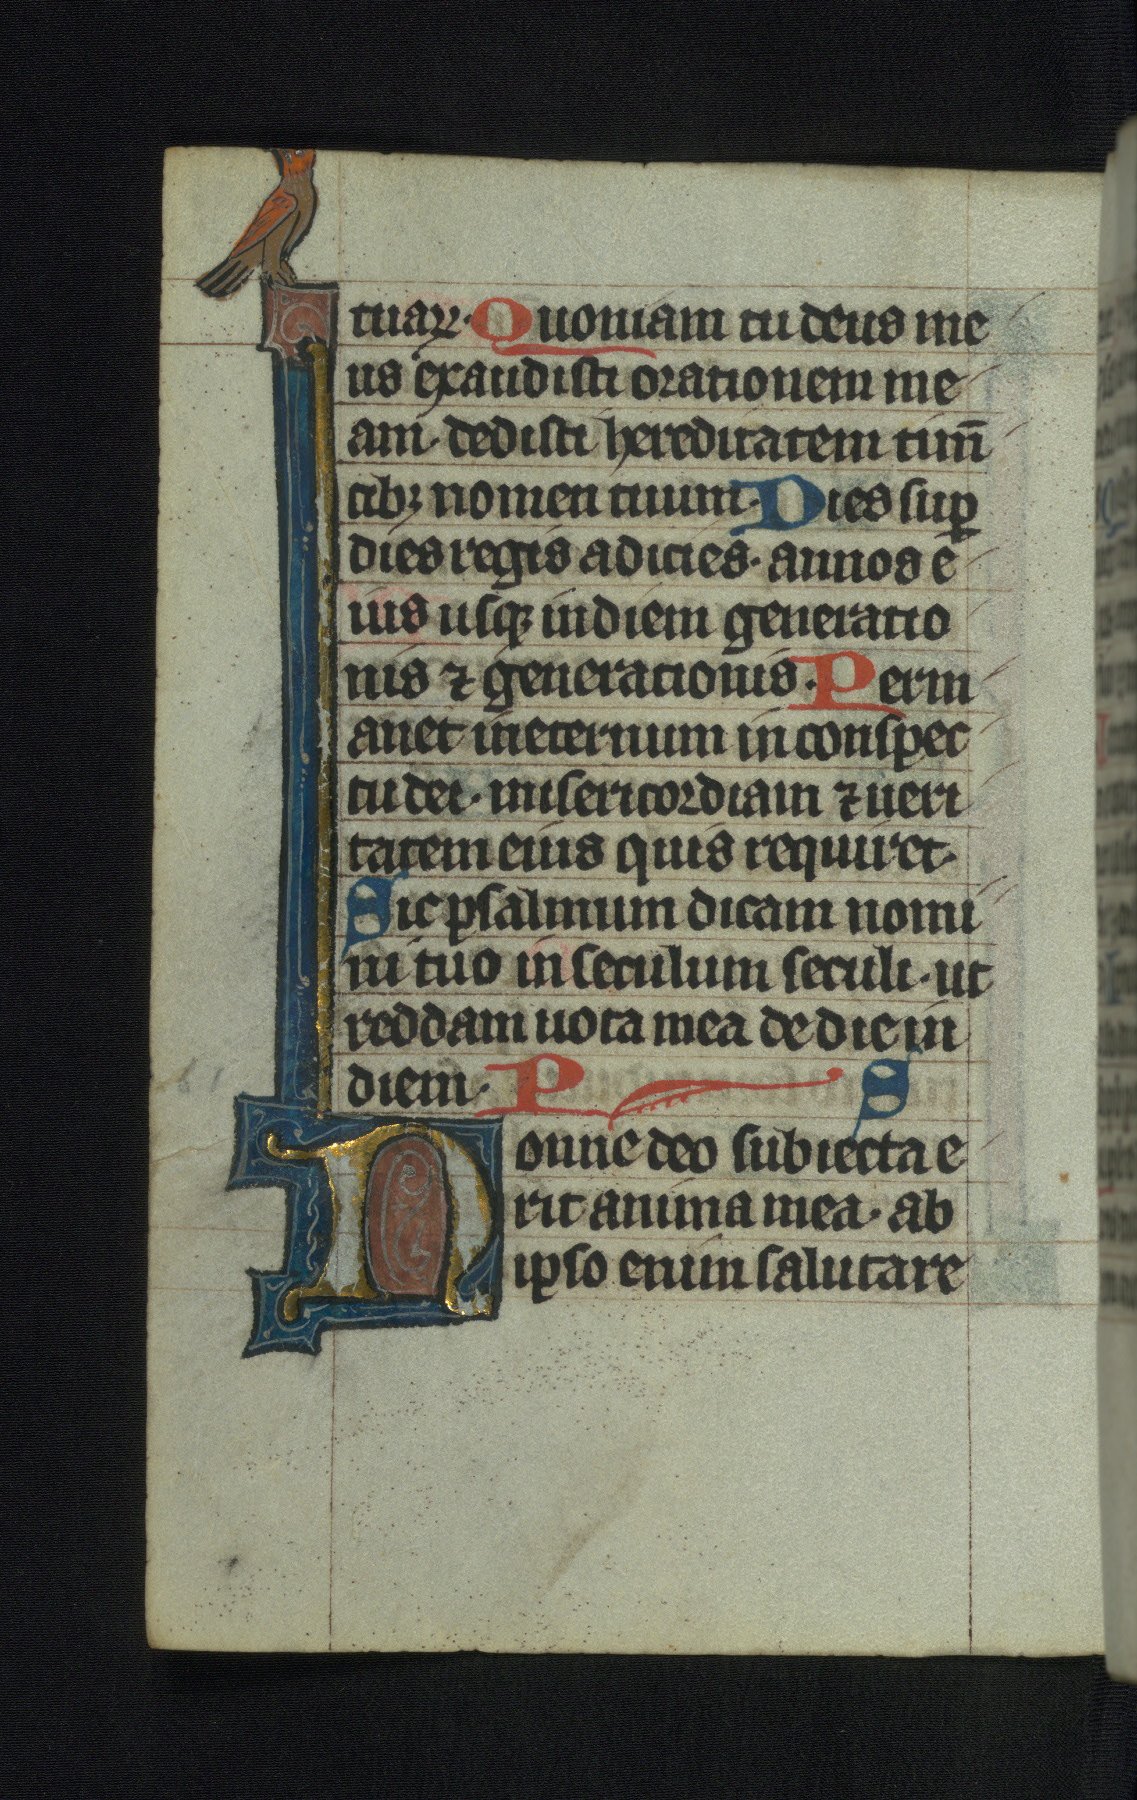 tuaꝝ. Quoniam tu deus me
us exaudisti orationem me
am. dedisti hereditatem timē
tibꝫ nomen tuum. Dies suꝑ
dies regis adicies. annos e
ius usqꝫ in diem generatio
nis ⁊ generationis. Perm
anet in eternum in conspec
tu dei. misericordiam ⁊ ueri
tatem eius quis requiret.
Sic psalmum dicam nomi
ni tuo in seculum seculi. ut
reddam uota mea de die in
diem. P S
Nonne deo subiecta e
rit anima mea. ab
ipso enim salutare